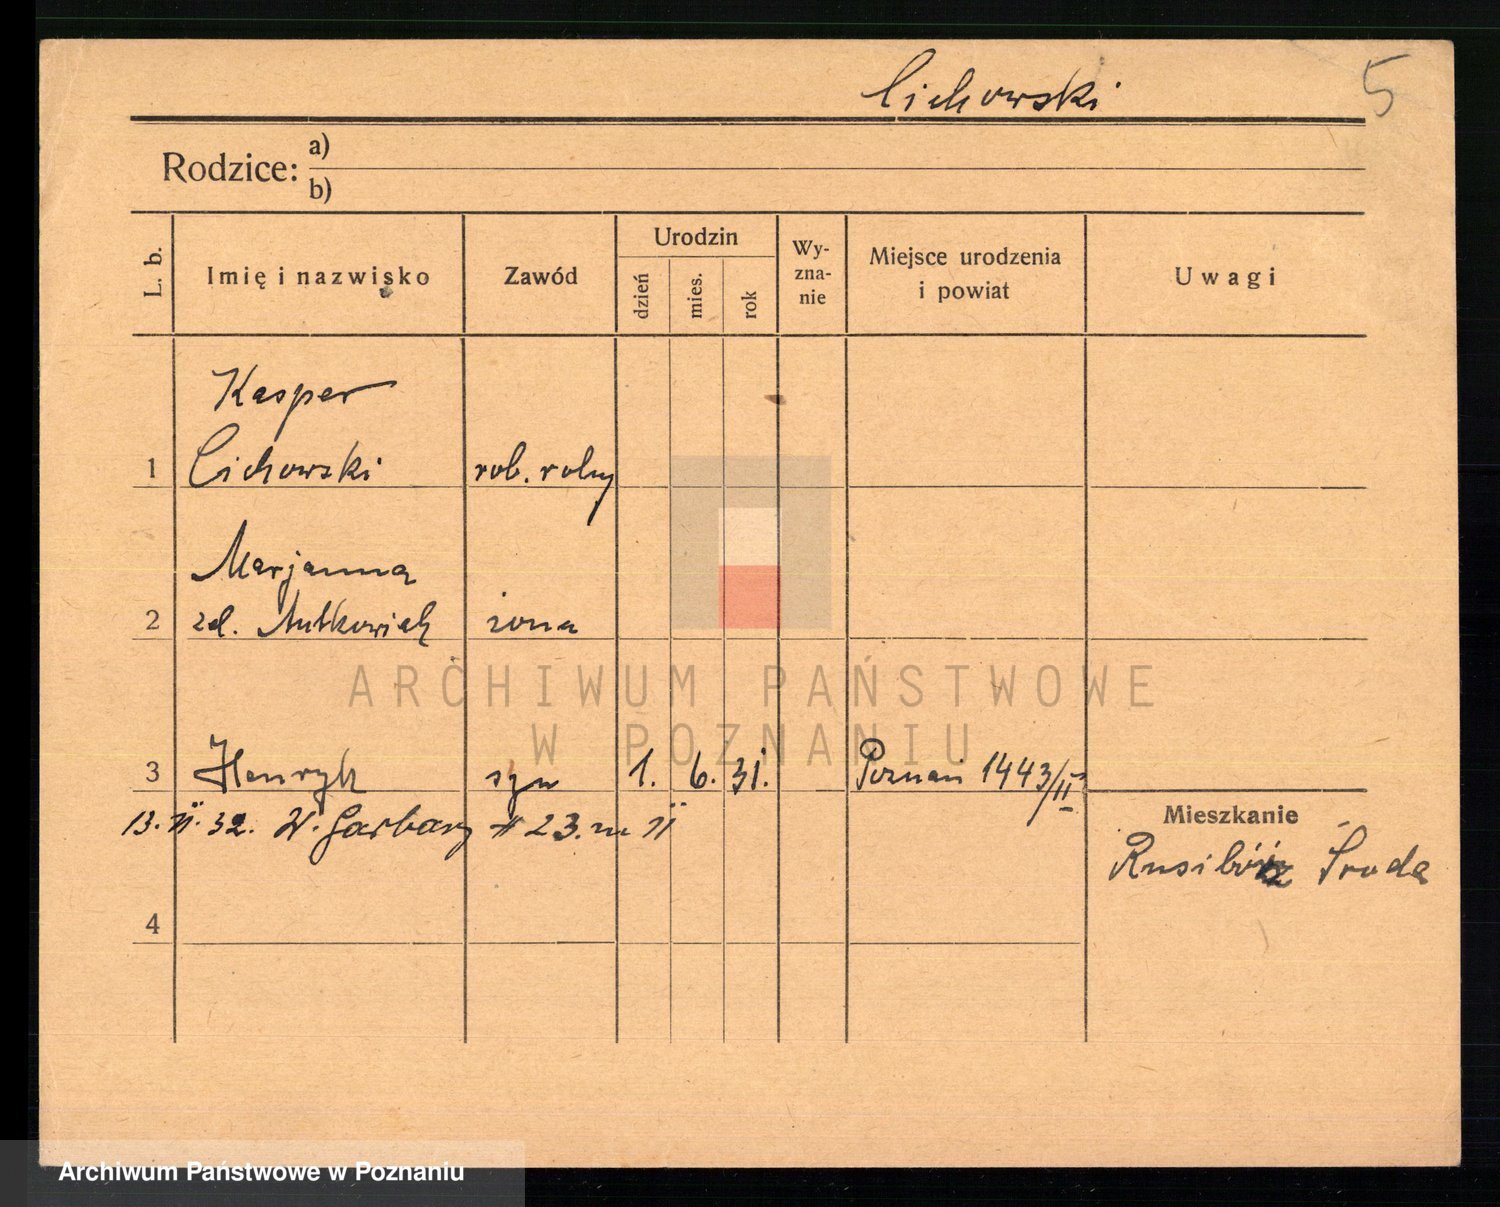 Cichowski 5
Rodzice: a)
b)
L. b. Imię i nazwisko Zawód Urodzin dzień mies. rok Wy-zna-nie Miejsce urodzenia i powiat Uwagi
Kasper
1 Cichowski rob. rolny
Marjanna
2 zd. Antkowiak żona
ARCHIWUM PAŃSTWOWE
W POZNANIU
3 Henryk syn 1. 6. 31. Poznań 1443/II
13. II. 32. W. Garbary # 23. m II
Mieszkanie
Środa
4
Archiwum Państwowe w Poznaniu